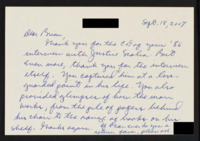 Sept. 18, 2007
Dear Brian,
Thank you for the C
interview with Justice Scalia. But
even more, thank you for the interview
itself. You captured him at a
point in his life. You
also provided glimpses of how the man
works, from the piles of papers behind
his chair to the names of books on his
shelf. Thanks again.